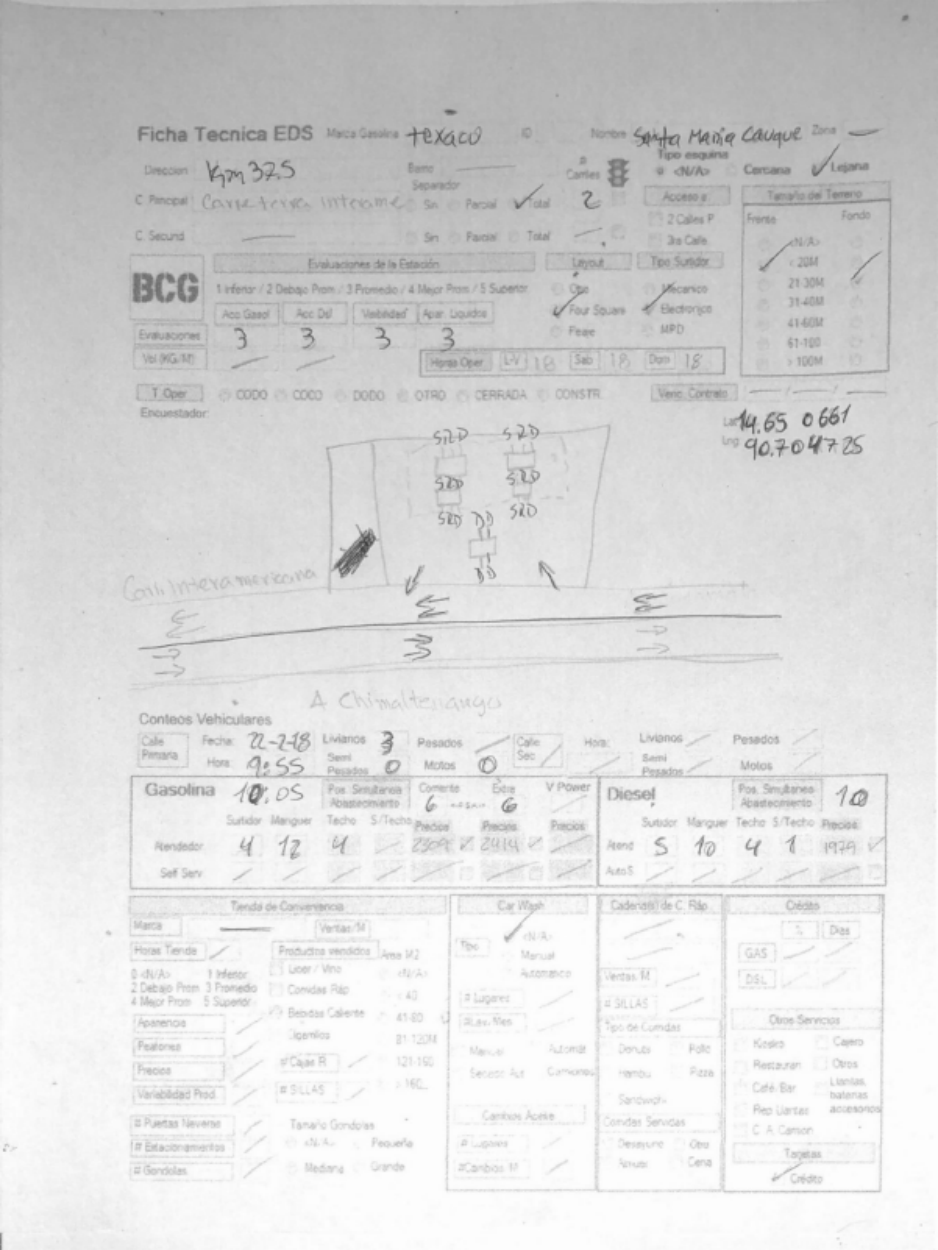 Ficha Tecnica EDS Marca Gasolina texaco ID Nombre Santa Maria Cauque Zona —
Direccion Km 37.5 Barrio — # Carriles 2 Tipo esquina <N/A> Cercana ✓ Lejana
Separador
C. Principal Carreterra Interame Sin Parcial ✓ Total
C. Secund — Sin Parcial Total —
Acceso a:
2 Calles P
3ra Calle
Tamaño del Terreno
Frente Fondo
<N/A>
✓ < 20M
21-30M ✓
31-40M
41-60M
61-100
> 100M
BCG
Evaluaciones de la Estación
1 Inferior / 2 Debajo Prom / 3 Promedio / 4 Mejor Prom / 5 Superior
Acc Gasol Acc Dsl Visibilidad Apar. Liquidos
Evaluaciones 3 3 3 3
Vol (KG/M) / /
Layout
Otro
✓ Four Square
Tipo Surtidor
Mecanico
✓ Electronico
MPD
Horas Oper. L-V 18 Sab 18 Dom 18
T. Oper CODO COCO DODO OTRO CERRADA CONSTR.
Venc. Contrato
Encuestador:
Lat 14.65 0661
Lng 90.704725
SRD SRD
SRD SRD
SRD DD SRD
DD
Carr. Interamericana
A Chimaltenango
Conteos Vehiculares
Calle Primaria Fecha: 22-2-18 Livianos 3 Pesados / Calle Sec / Hora: Livianos / Pesados /
Hora: 9:55 Semi Pesados 0 Motos 0 / Semi Pesados / Motos /
Gasolina 10:05 Pos. Simultanea Abastecimiento 6 6 V Power
Surtidor Manguer Techo S/Techo Precios Precios Precios
Atendedor 4 12 4 / 2309 ✓ 2414 ✓
Self Serv / / / /
Diesel Pos. Simultanea Abastecimiento 10
Surtidor Manguer Techo S/Techo Precios
Atend 5 10 4 1 1979 ✓
Auto S / / / /
Tienda de Conveniencia
Marca — Ventas/M
Horas Tienda / Productos vendidos Area M2
0 <N/A> 1 Inferior
2 Debajo Prom 3 Promedio
4 Mejor Prom 5 Superior
Licor / Vino <N/A>
Comidas Ráp < 40
Bebidas Caliente 41-80
Cigarrillos 81-120M
# Cajas R / 121-160
# SILLAS / > 160
Apariencia /
Peatones /
Precios /
Variabilidad Prod. /
# Puertas Neveras / Tamaño Gondolas
# Estacionamientos / <N/A> Pequeña
# Gondolas / Mediana Grande
Car Wash
Tipo ✓ <N/A>
Manual
Automatico
# Lugares /
# Lav. Mes /
Manual Automát
Cambios Aceite
# Lugares /
# Cambios M /
Cadena(s) de C. Ráp.
Ventas/M /
# SILLAS /
Tipo de Comidas
Donuts Pollo
Hambu Pizza
Sandwich
Comidas Servidas
Desayuno Otro
Almuer Cena
Crédito
% Dias
GAS / /
DSL / /
Otros Servicios
Kosko Cajero
Restauran Otros
Café-Bar Llantas, baterias accesorios
Rep Llantas
C. A. Camion
Tarjetas
✓ Crédito